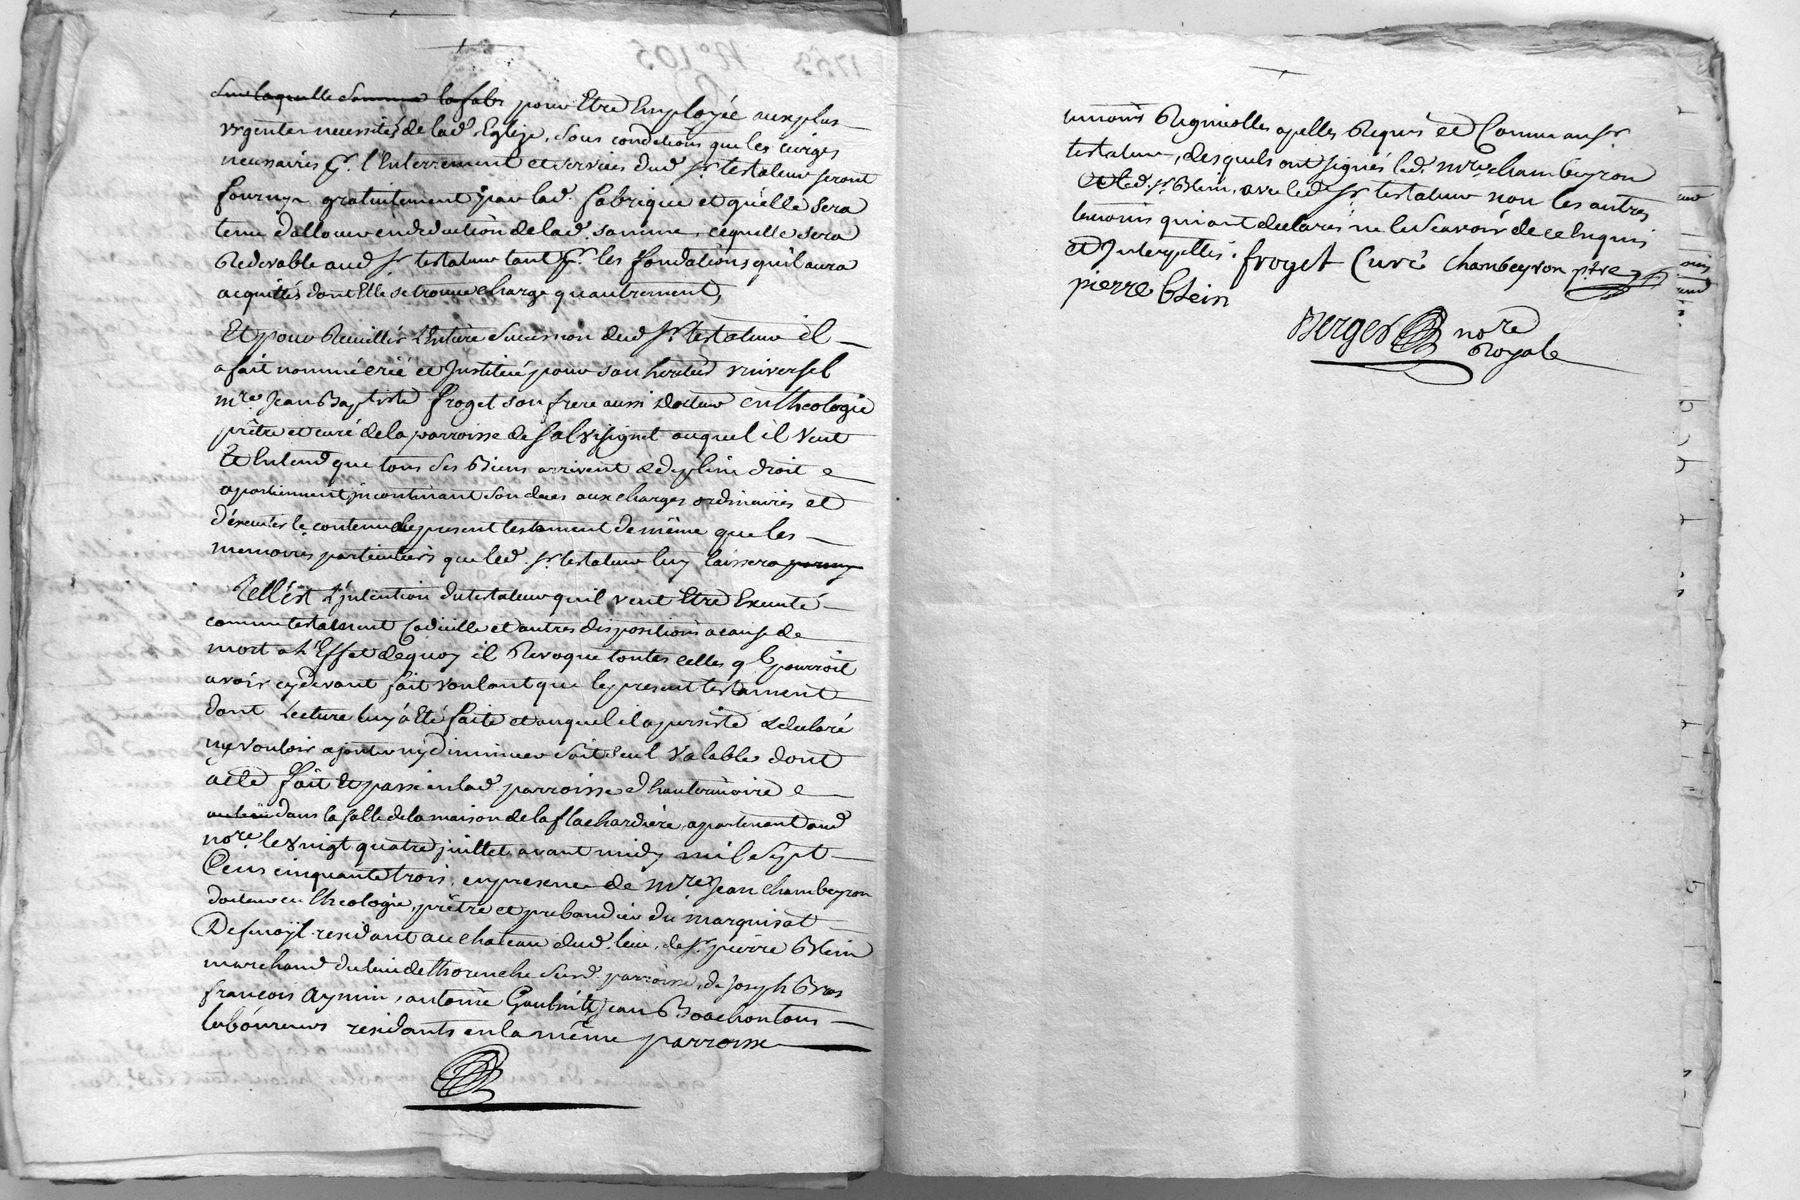 sur laquelle somme la fabr pour Etre Employée aux plus
urgentes necessités de lad. Eglize, sous conditions que les cierges
necessaires pr. l'Enterrement et services dud. sr. testateur seront
fournys gratuitement par lad. fabrique et qu'elle sera
tenue d'allouer en deduction de lad. somme, ce qu'elle sera
Redevable aud sr. testateur tant pr. les fondations qu'il aura
acquittés dont Elle se trouve chargé qu'autrement,
Et pour Recuillir L'entiere Succession dud sr. testateur il
a fait nommé créé et Institué pour son heritier universel
mre. Jean Baptiste froget son frere aussi docteur en theologie
prêtre et curé de la parroisse de Salvisinet auquel il veut
Et Entend que tous ses Biens arrivent de plein droit e
apartiennent incontinant son deces aux charges ordinaires et
d'éxecuter le contenu du present testament de même que les
memoires particuliers que led. sr. testateur luy laissera
Telle est L'jntention du testateur qu'il veut Etre Executé
comme testament Codicille et autres dispositions a cause de
mort a L'Effet de quoy il Revoque toutes celles ql pourroit
avoir cy devant fait voulant que le present testament
dont Lecture luy a Eté faite et auquel il a persisté declaré
ny vouloir ajouter ny diminuer soit seul valable dont
acte fait et passé en lad parroisse d'hauterivoire e
dans la salle de la maison de la flachardiere apartenant aud
nore. le vingt quatre juillet avant midy mil sept
Cens cinquante trois, en presence de mre. Jean Chambeyron
docteur en theologie, prêtre et prebandier du marquisat
residant au chateau dud. lieu, de sr. pierre Blein
marchand du lieu de thorenche surd. parroisse, de joseph Bras
françois Aymin, antoine jean tous
laboureurs residants en la même parroisse
temoins Reginicolles apellés Requis et Connus au sr.
testateur, desquels ont signés led. mre. chambeyron
et led. sr. Blein, avec led. sr. testateur non les autres
temoins qui ont declarés ne le sçavoir de ce Enquis
et Interpellés. froget Curé Chambeyron ptre
pierre blein
Berger nore
Royale